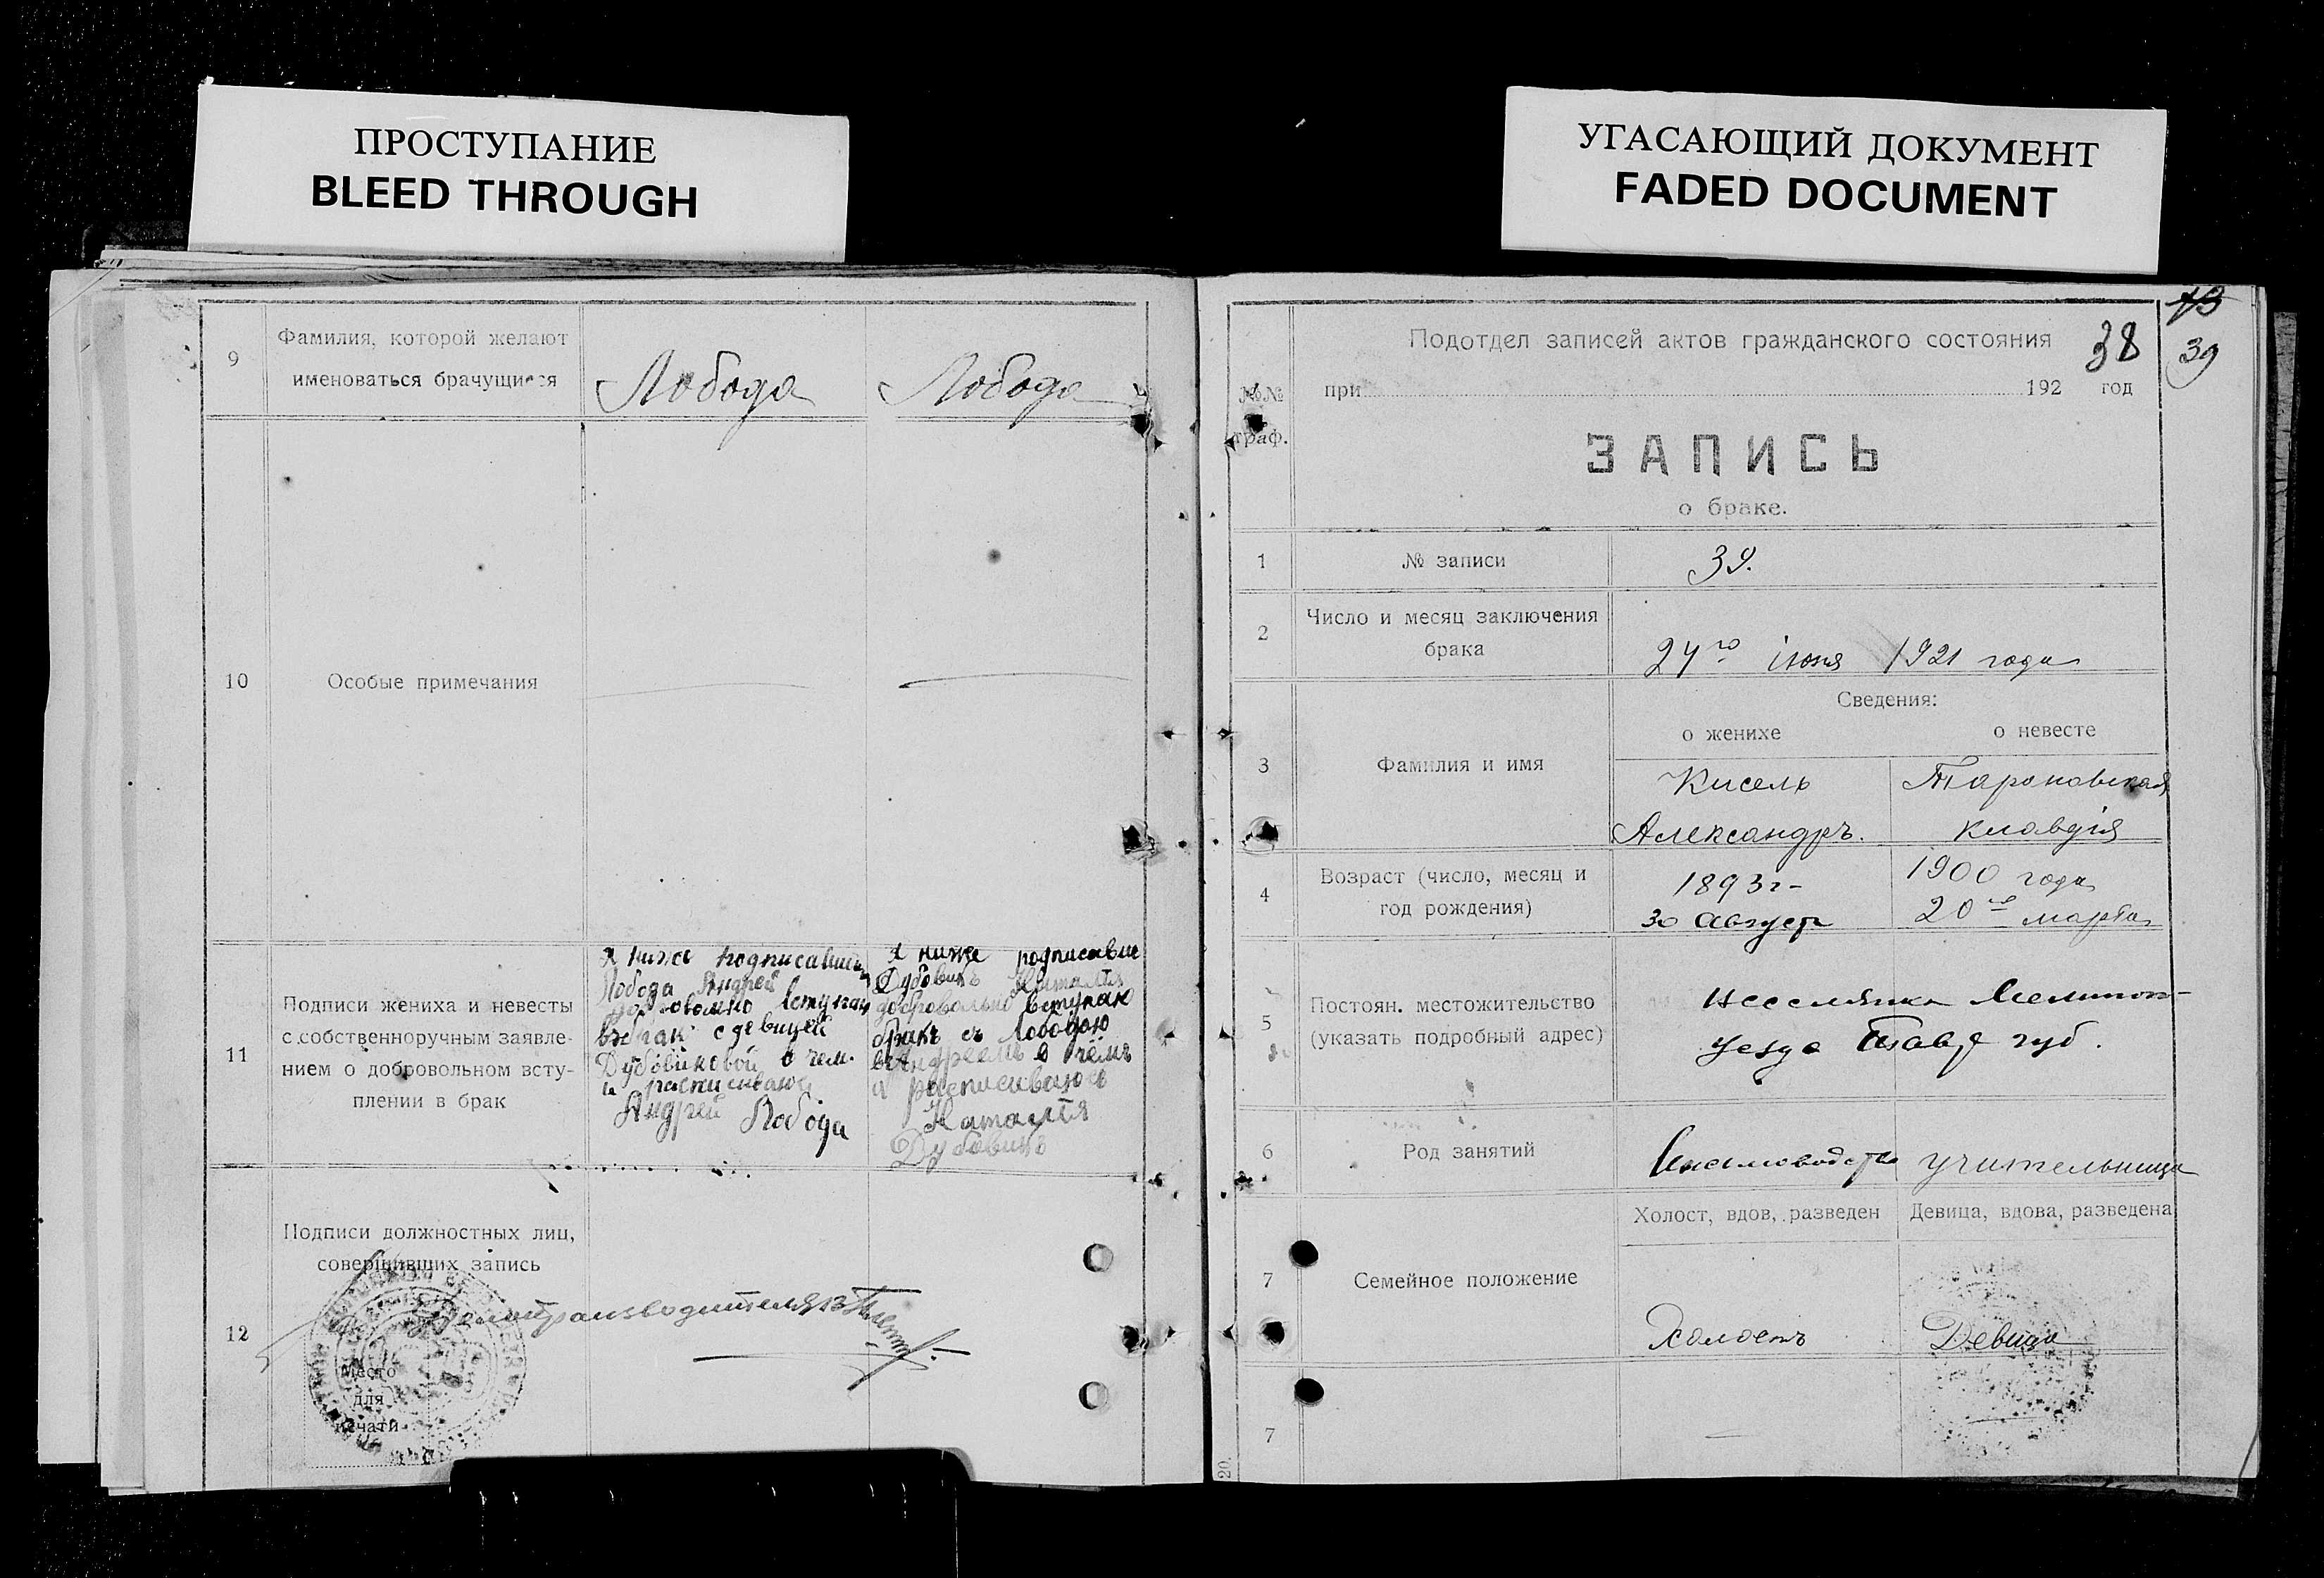 ПРОСТУПАНИЕ
BLEED THROUGH
УГАСАЮЩИЙ ДОКУМЕНТ
FADED DOCUMENT
9
Фамилия, которой желают
именоваться брачущиеся
Лобода
Лобода
10
Особые примечания
11
Подписи жениха и невесты
с собственноручным заявле-
нием о добровольном всту-
плении в брак
Я ниже подписавши
Лобода Андрей
вступаю
в брак с девицей
Дубовиковой в чем
и расписываюсь
Андрей Лобода
Я ниже подписавше
Дубовикъ Наталія
добровольно вступаю
бракъ съ Лободою
Андреемъ в чёмъ
и расписываюсь
Наталія
Дубовикъ
12
Подписи должностных лиц,
совершивших запись
Место
для
печати
73
38
39
Подотдел записей актов гражданского состояния
№№
граф.
при 192 год
ЗАПИСЬ
о браке.
1
№ записи
39.
2
Число и месяц заключения
брака
24го іюня 1921 года
Сведения:
о женихе
о невесте
3
Фамилия и имя
Кисель
Александръ.
Тарановская
Клавдія
4
Возраст (число, месяц и
год рождения)
1893 г-
30 Август
1900 года
20го марта
5
Постоян. местожительство
(указать подробный адрес)
Мелитоп-
уезда Тавр губ.
6
Род занятий
учительница
7
Семейное положение
Холост, вдов, разведен
Девица, вдова, разведена
Холостъ
Девица
7
20.